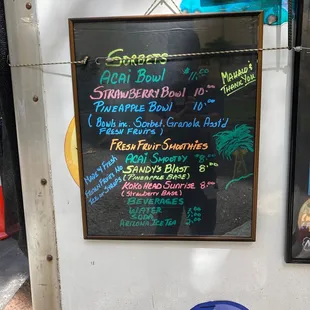 SORBETS
ACAI BOWL $11.00
STRAWBERRY BOWL 10.00
PINEAPPLE BOWL 10.00
(BOWLS INC. SORBET, GRANOLA ASST'D
FRESH FRUITS)
MAHALO &
THANK YOU
FRESH FRUIT SMOOTHIES
ACAI SMOOTHY $8.
SANDY'S BLAST 8.00
(PINEAPPLE BASE)
KOKO HEAD SUNRISE 8.00
(STRAWBERRY BASE)
BEVERAGES
WATER
SODA
ARIZONA ICE TEA
MADE W/ FRESH
FRUIT NO
ICE